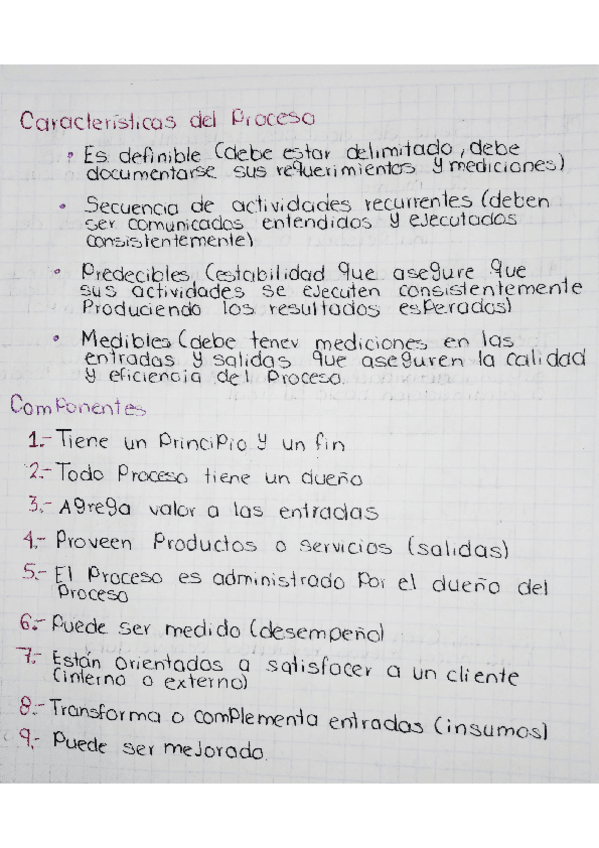 Características del Proceso
• Es definible (debe estar delimitado, debe
documentarse sus requerimientos y mediciones)
• Secuencia de actividades recurrentes (deben
ser comunicados entendidos y ejecutados
consistentemente)
• Predecibles (estabilidad que asegure que
sus actividades se ejecuten consistentemente
Produciendo los resultados esperados)
• Medibles (debe tener mediciones en las
entradas y salidas que aseguren la calidad
y eficiencia del Proceso.
Componentes
1.- Tiene un Principio y un fin
2.- Todo Proceso tiene un dueño
3.- Agrega valor a las entradas
4.- Proveen Productos o servicios (salidas)
5.- El Proceso es administrado Por el dueño del
Proceso
6.- Puede ser medido (desempeño)
7.- Están orientados a satisfacer a un cliente
(interno o externo)
8.- Transforma o complementa entradas (insumos)
9.- Puede ser mejorado.